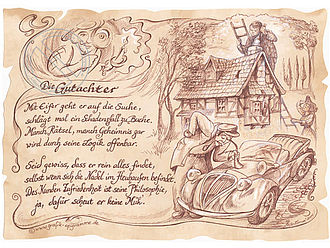 Der Gutachter
Mit Eifer geht er auf die Suche,
schlägt mal ein Schadenfall zu Buche.
Manch Rätsel, manch Geheimnis gar
wird durch seine Logik offenbar.
Seid gewiss, dass er rein alles findet,
selbst wenn sich die Nadel im Heuhaufen befindet.
Des Kunden Zufriedenheit ist seine Philosophie,
ja, dafür scheut er keine Müh.